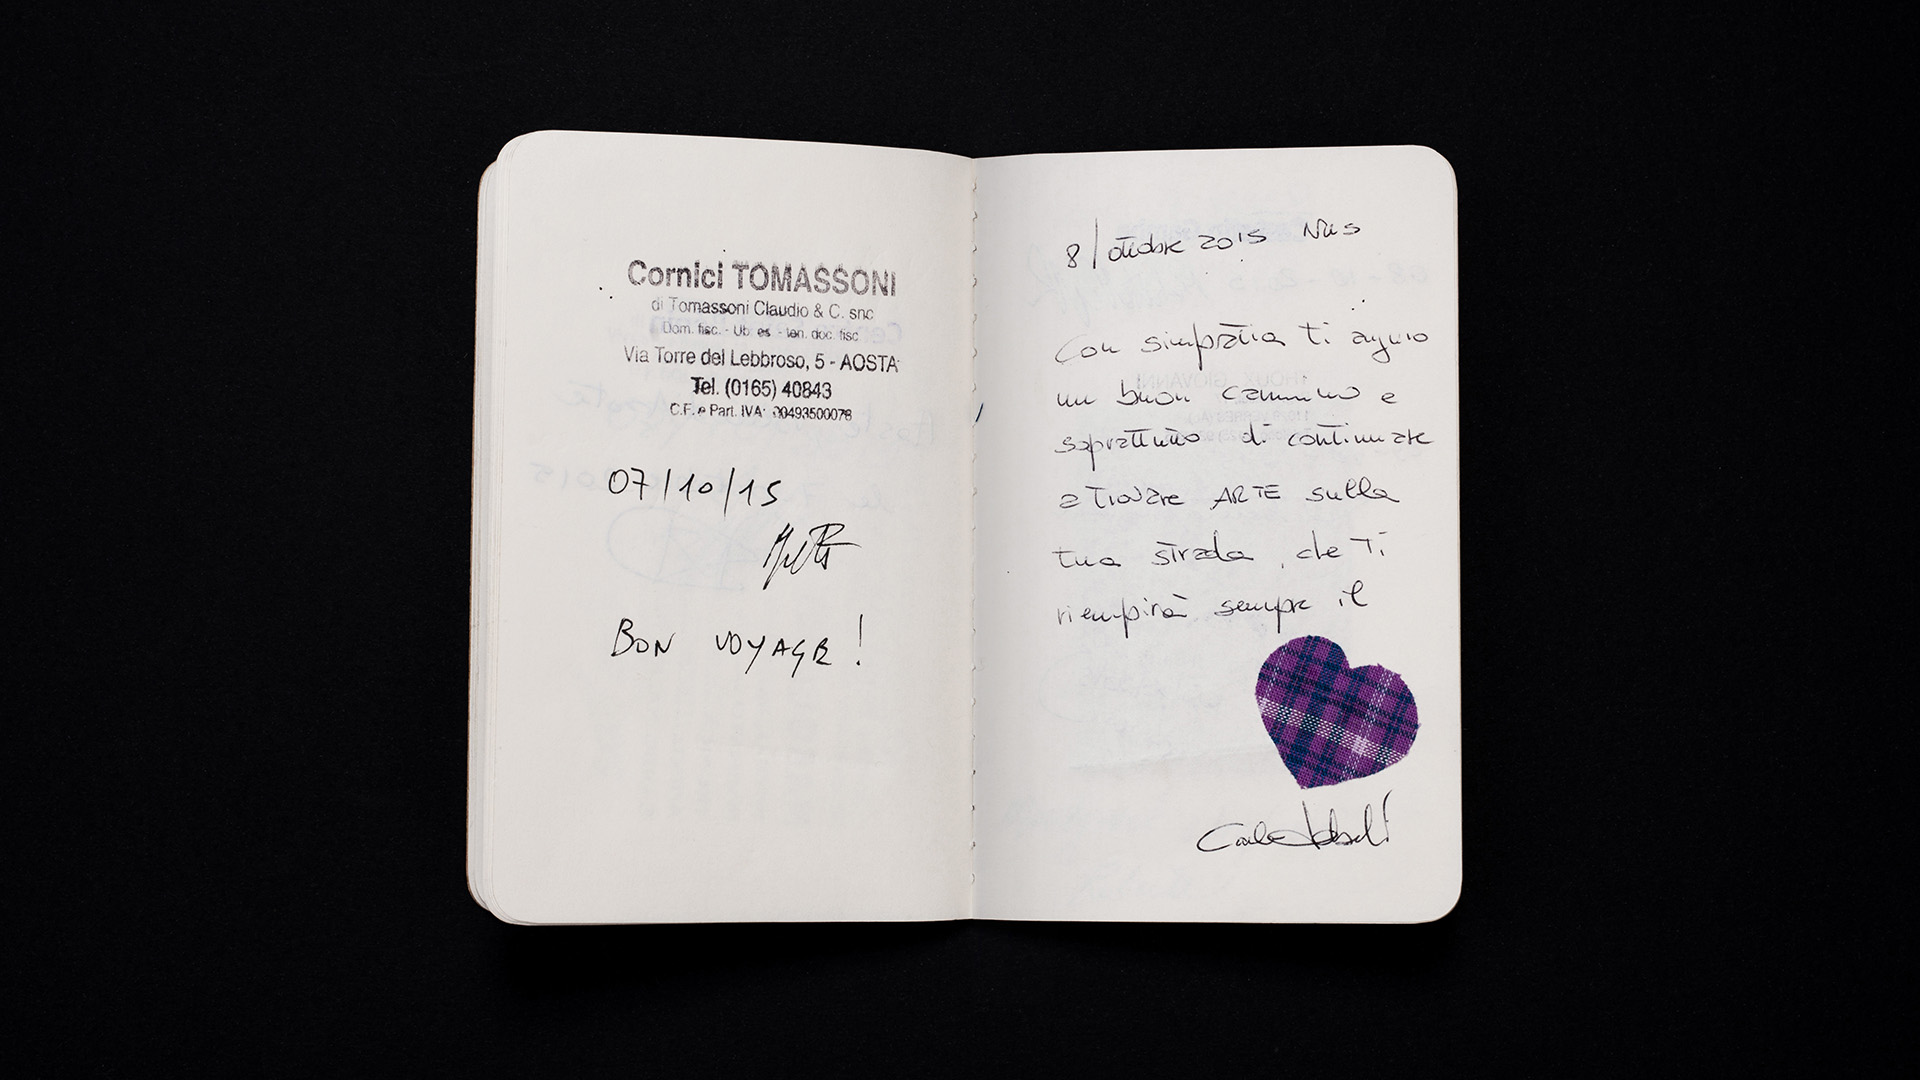 Cornici TOMASSONI
di Tomassoni Claudio & C. snc
Dom. fisc. - Ub. es. - ten. doc. fisc
Via Torre del Lebbroso, 5 - AOSTA
Tel. (0165) 40843
C.F. e Part. IVA: 00493500078
07/10/15
BON VOYAGE!
8/ottobre 2015 Nus
Con simpatia ti auguro
un buon cammino e
soprattutto di continuare
a trovare ARTE sulla
tua strada, che ti
riempirà sempre il